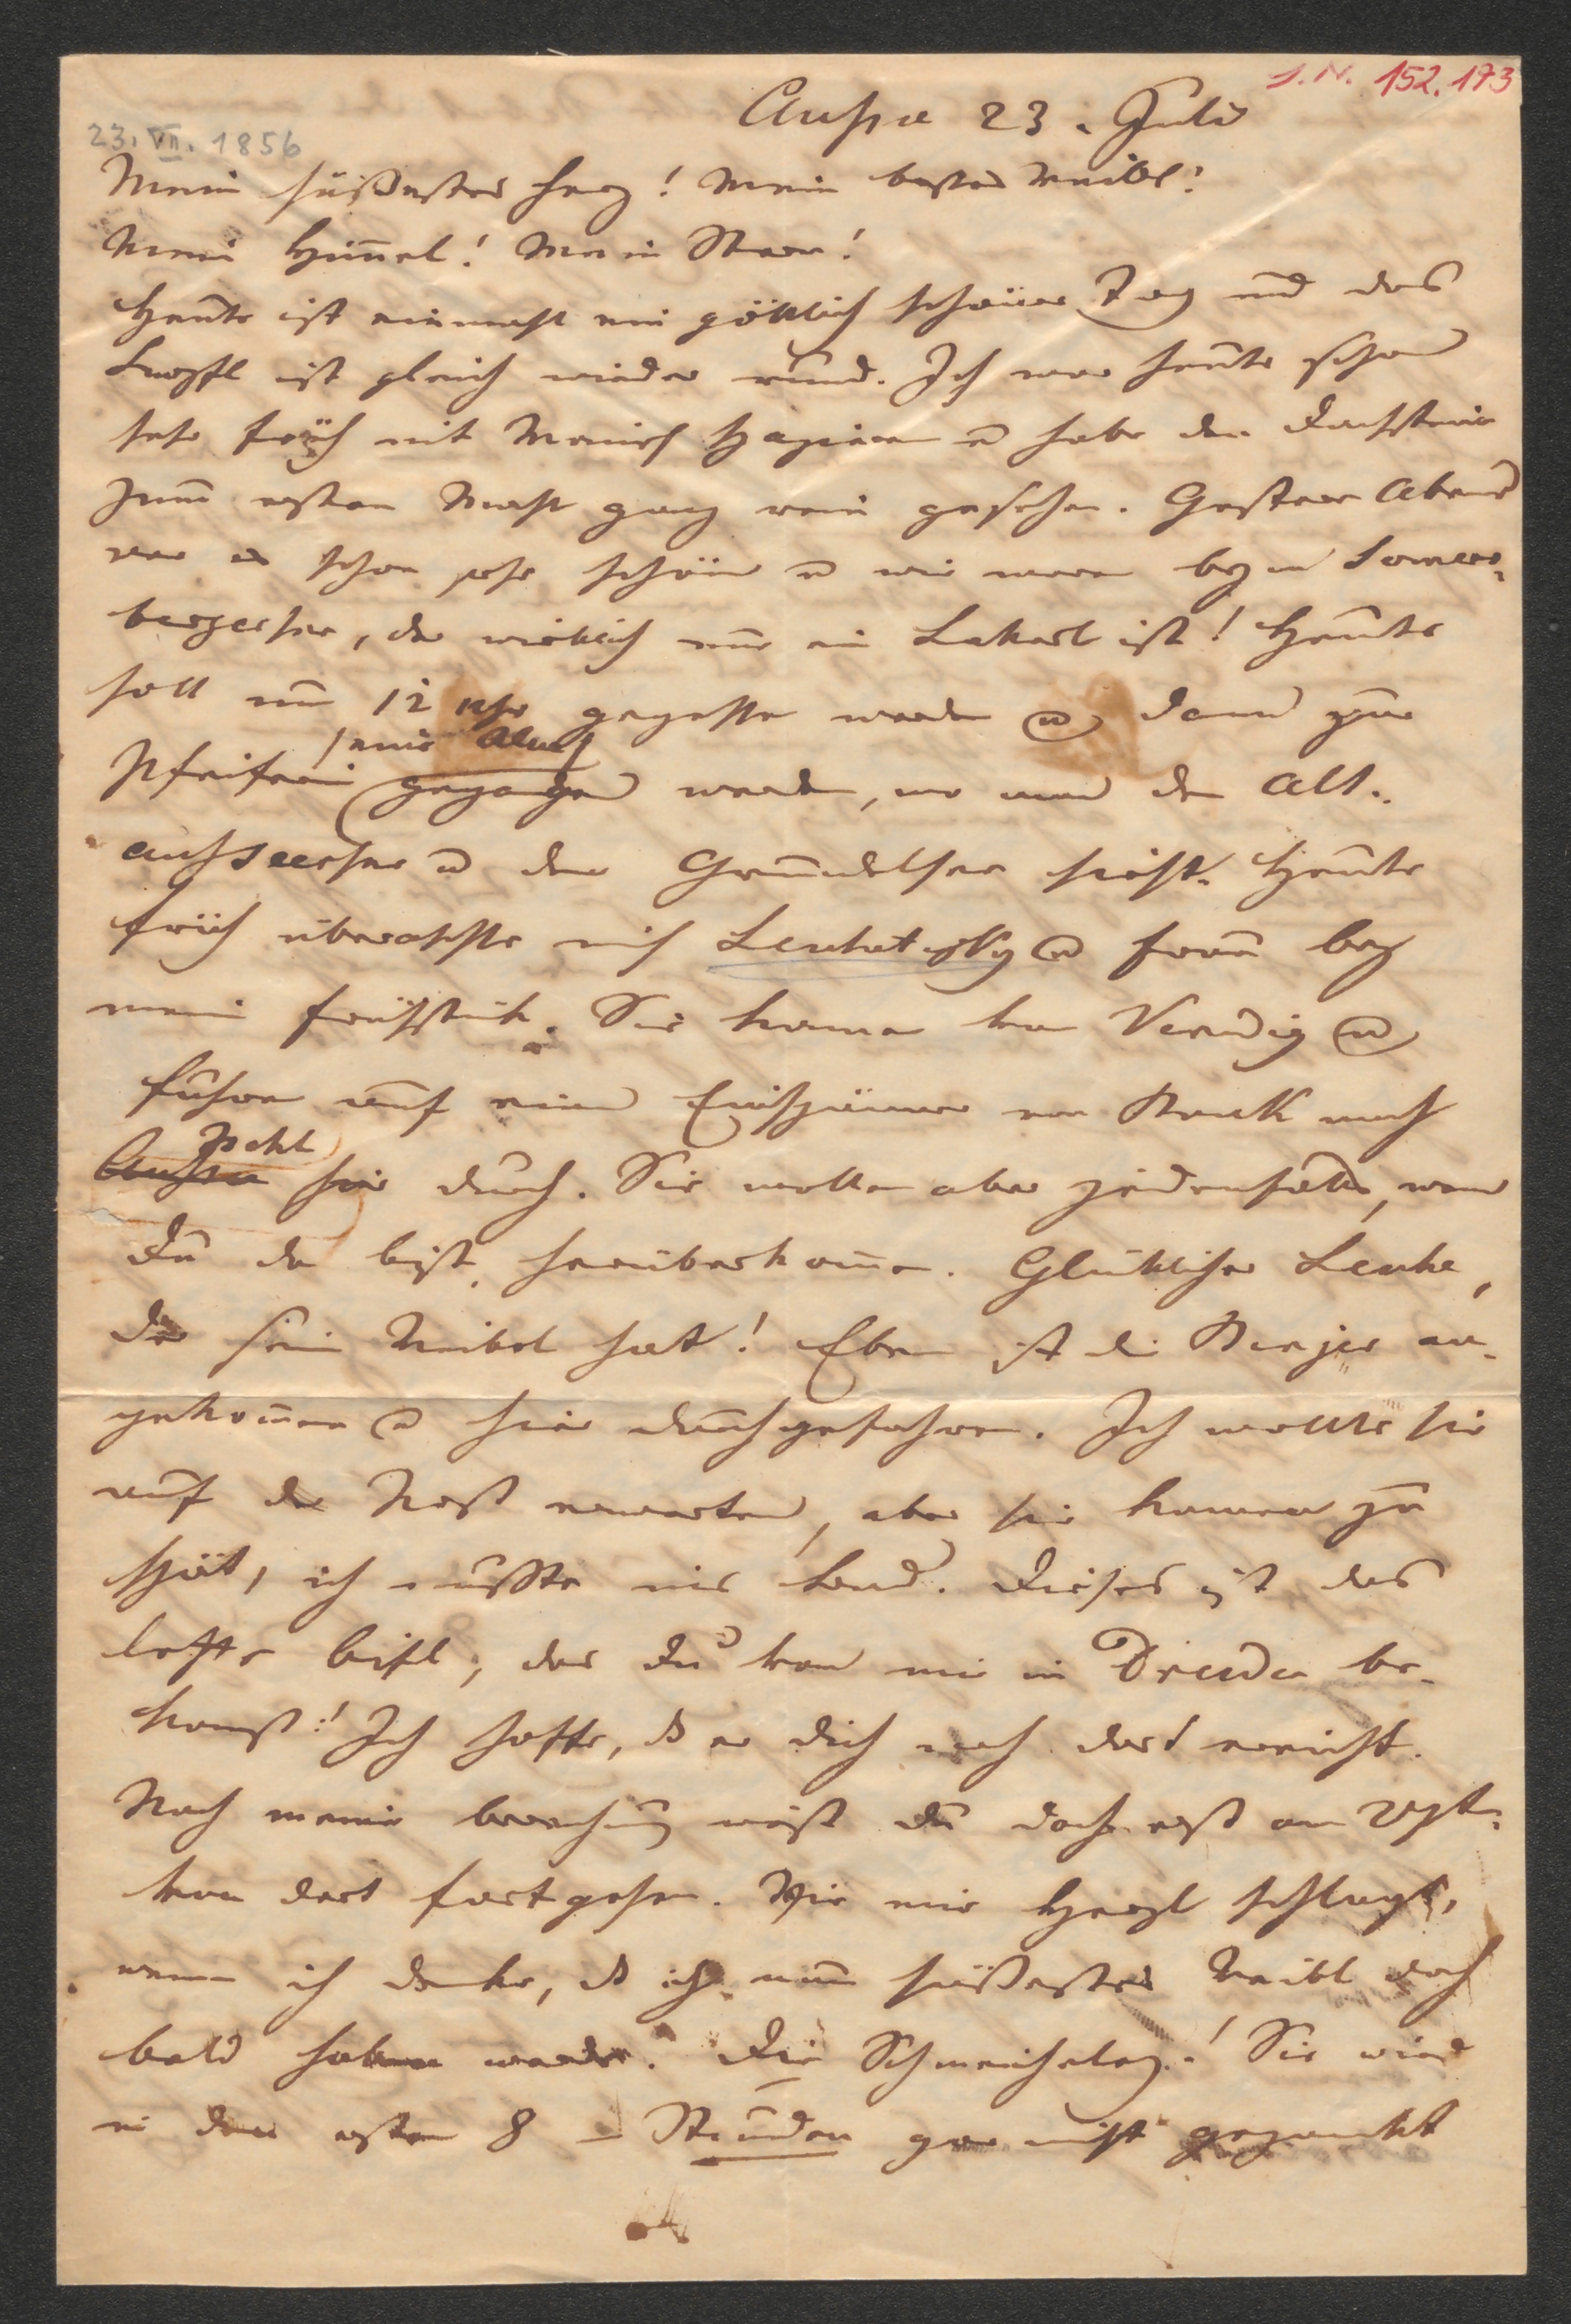 I. N. 152.173
Aussee 23. Juli
23. VII. 1856
Mein süßestes Herz! Mein bestes Weibl!
Mein Himel! Mein Stern!
Heute ist einmahl ein göttlich schöner Tag und das
ist gleich wieder rund. Ich war heute schon
sehr früh mit Marie spaziren u habe den Dachstein
zum ersten Mahl ganz rein gesehen. Gestern Abend
war es schon sehr schön u wir waren beym Somers-
bergersee, der wirklich nur ein Lakerl ist! Heute
soll um 12 Uhr gegessen werden u dann zur
Pfeiferin /eine Alm/ gegangen werden, wo man den Alt-
ausseersee u den Grundelsee sieht. Heute
früh überraschte mich Leukatsky u Frau bey
mein Frühstük. Sie kamen von Venedig u
fuhren auf einen Einspänner von Bruk nach
Aussee Ischl hier durch. Sie wollen aber jedenfalls, wenn
Du da bist, herüberkomen. Glüklicher Leuke,
der sein Weiberl hat! Eben ist die an-
gekomen u hier durchgefahren. Ich wollte sie
auf der Post erwarten, aber sie kamen zu
spät, ich mußte Dieses ist das
letzte das Du von mir in Dresden be-
komst! Ich hoffe, dß er Dich noch dort erreicht.
Nach meiner Berechnung wirst Du doch erst am
von dort fortgehen. Wie mir Herzl schlagt,
wenn ich denke, dß ich mein süßestes Weibl doch
bald haben werde. Die Schmeicheley! Sie wird
in den ersten 8 – Stunden gar nicht gezankt